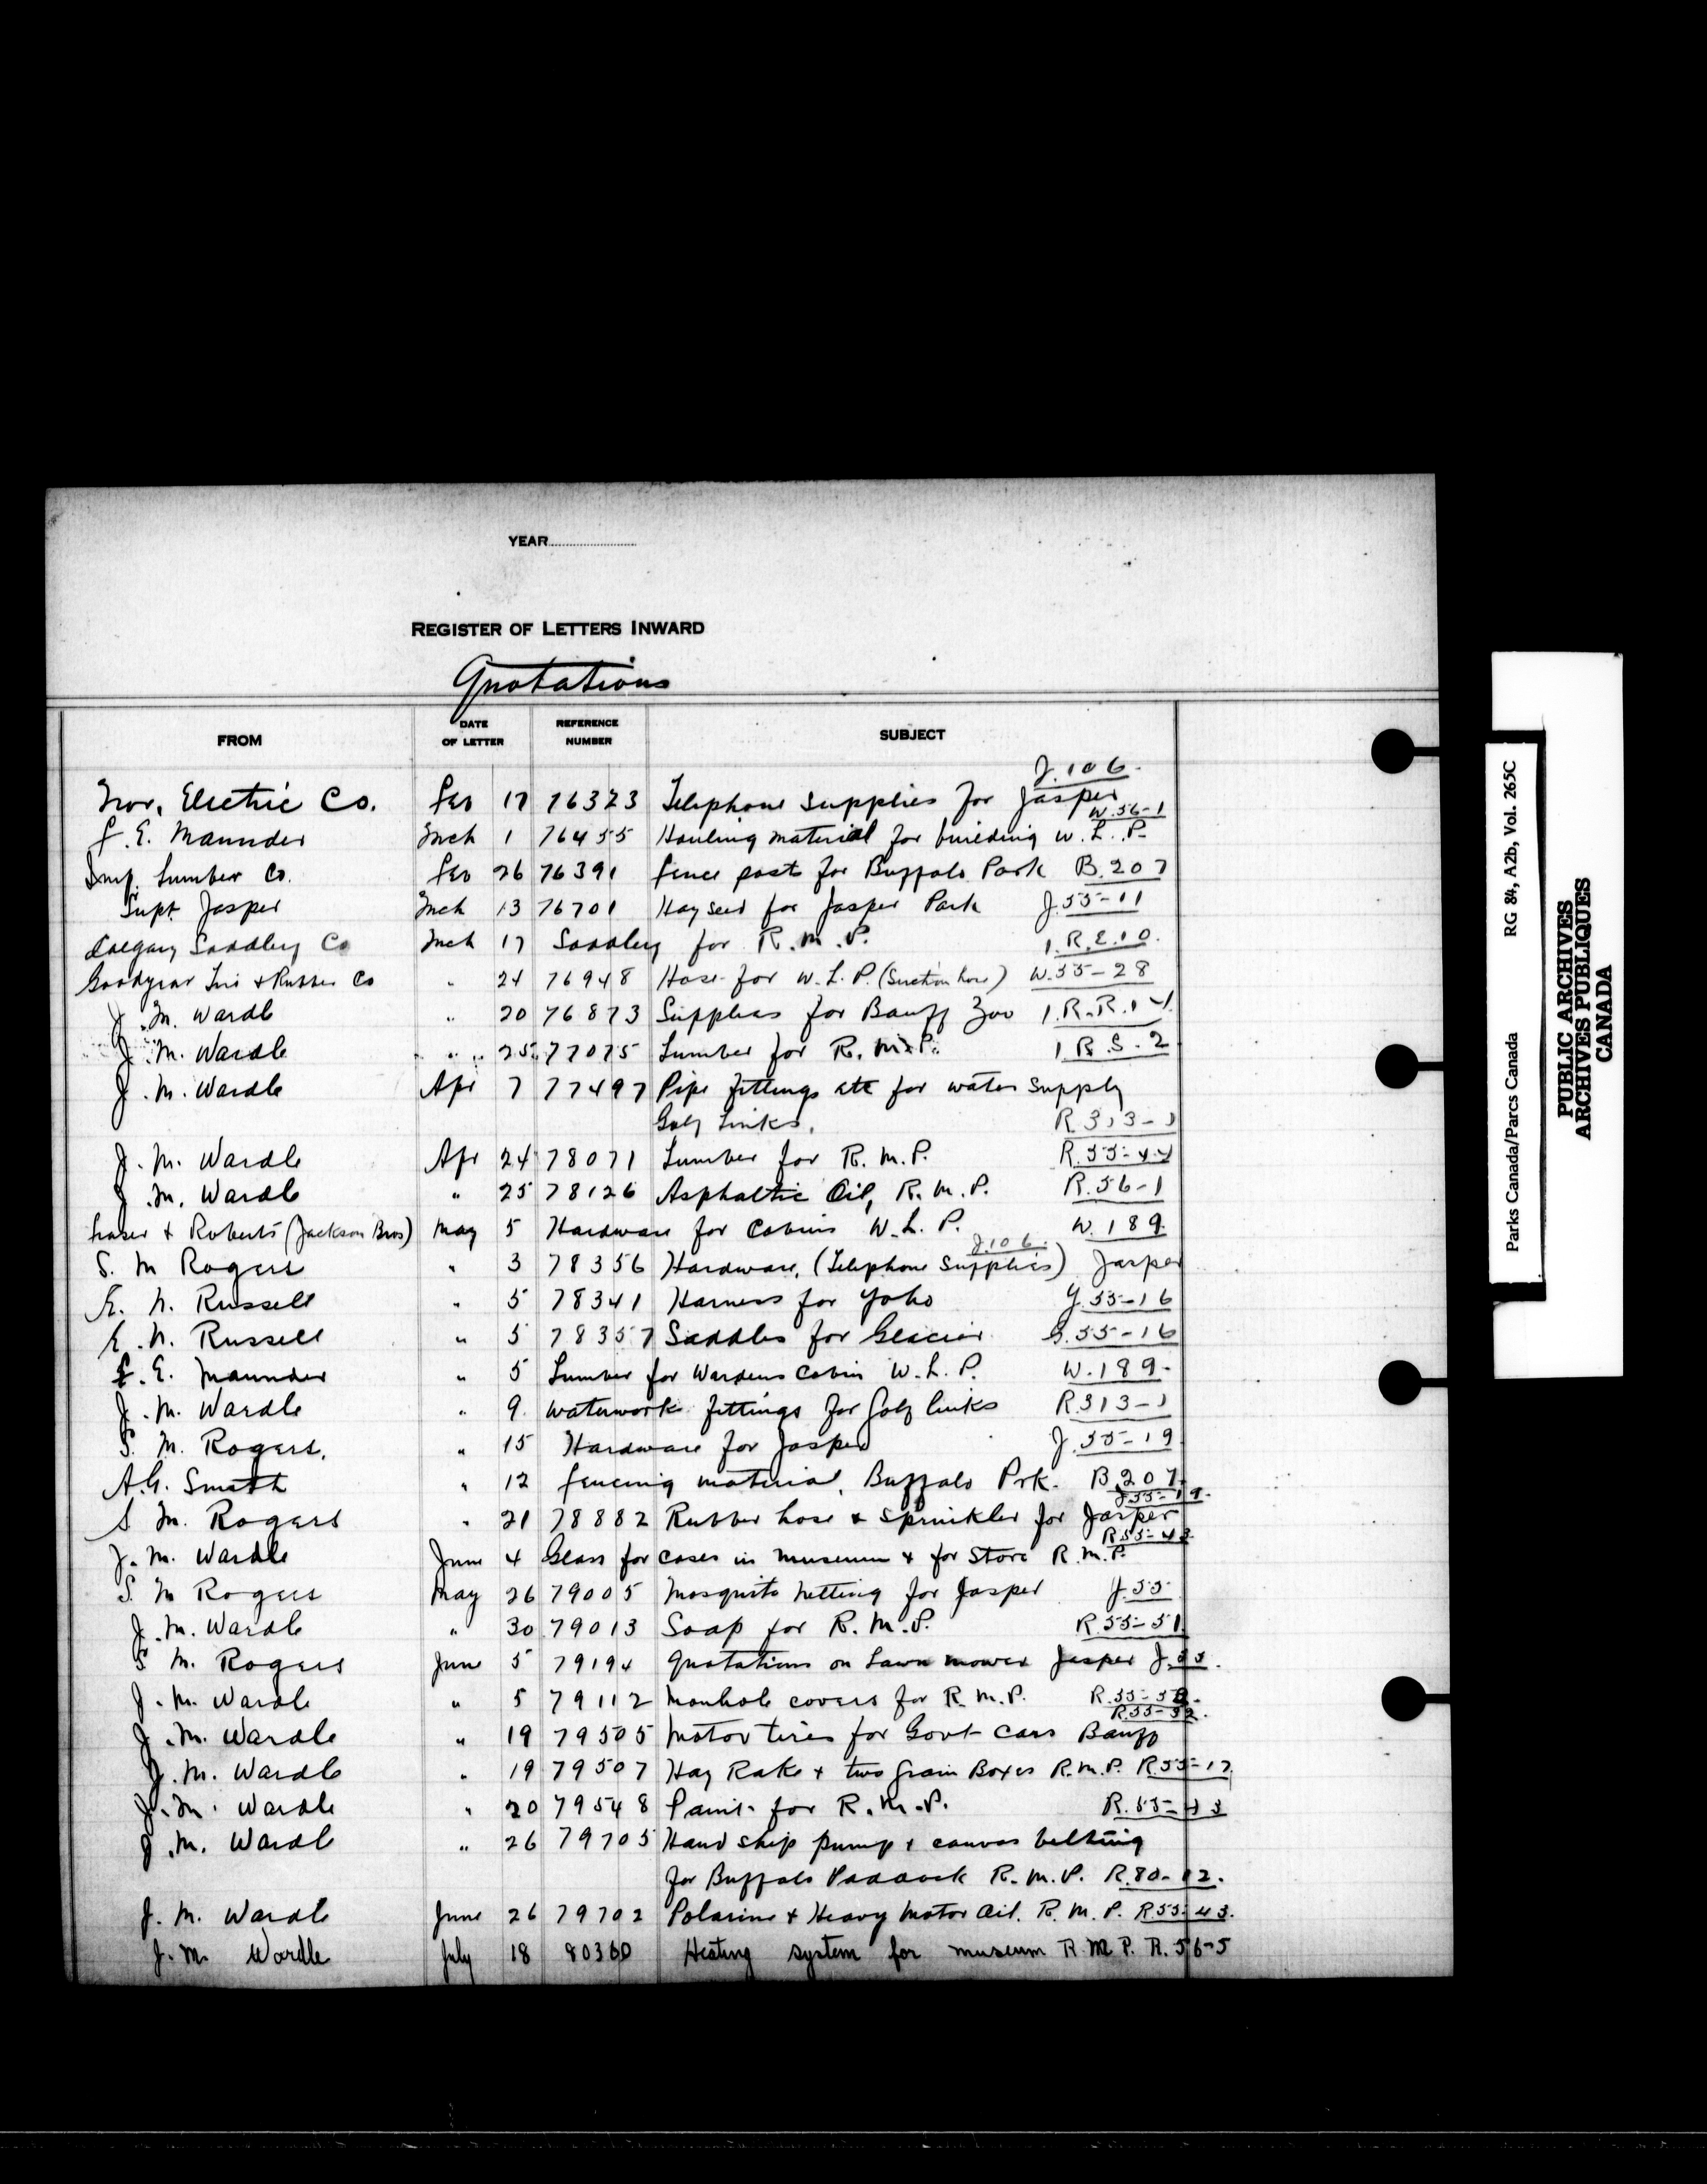 YEAR
REGISTER OF LETTERS INWARD
Quotations
FROM DATE OF LETTER REFERENCE NUMBER SUBJECT
J.106.
Nor. Electric Co. Feb 17 76323 Telephone Supplies for Jasper
W.56-1
F. E. Maunder Mch 1 76455 Hauling material for building W. L. P.
Imp. Lumber Co. Feb 26 76391 Fence posts for Buffalo Park B.207
Supt Jasper Mch 13 76701 Hay seed for Jasper Park J.55-11
Calgary Saddlery Co Mch 17 Saddlery for R.M.P. 1.R.E.10.
Goodyear Tire & Rubber Co " 24 76948 Hose for W. L. P. (Suction hose) W.55-28
J. M. Wardle " 20 76873 Supplies for Banff Zoo 1.R.R.14
J. M. Wardle " 25 77075 Lumber for R. M. P. 1 R.S.2
J. M. Wardle Apr 7 77497 Pipe fittings etc for water supply
Golf Links. R.313-1
J. M. Wardle Apr 24 78071 Lumber for R. M. P. R.55-44
J. M. Wardle " 25 78126 Asphaltic Oil, R. M. P. R.56-1
Fraser & Roberts (Jackson Bros) May 5 Hardware for Cabins W. L. P. W.189.
J.106.
S. M Rogers " 3 78356 Hardware, (Telephone Supplies) Jasper
E. N. Russell " 5 78341 Harness for Yoho Y.55-16
E. N. Russell " 5 78357 Saddles for Glacier G.55-16
F. E. Maunder " 5 Lumber for Wardens Cabin W. L. P. W.189-
J. M. Wardle " 9. Waterwork fittings for Golf links R313-1
S. M. Rogers. " 15 Hardware for Jasper J.55-19
A.G. Smith " 12 Fencing material, Buffalo Prk. B.207.
J55-19.
S M. Rogers " 21 78882 Rubber hose & sprinkler for Jasper
R55-43
J. M. Wardle June 4 Glass for cases in museum & for Store R.M.P.
S. M Rogers May 26 79005 Mosquito netting for Jasper J.55
J. M. Wardle " 30 79013 Soap for R. M. P. R.55-51
S M. Rogers June 5 79194 Quotations on Lawn mower Jasper J.55.
J. M. Wardle " 5 79112 Manhole covers for R. M. P. R.55-38.
R.55-52.
J. M. Wardle " 19 79505 Motor tires for Govt Cars Banff
J. M. Wardle " 19 79507 Hay Rake & two Grain Boxes R.M.P. R55-17.
J. M. Wardle " 20 79548 Paint for R. M. P. R.55-43
J. M. Wardle " 26 79705 Hand ship pump & canvas belting
for Buffalo Paddock R. M. P. R.80-12.
J. M. Wardle June 26 79702 Polarine & Heavy Motor Oil. R. M. P. R55-43.
J. M. Wardle July 18 80360 Heating system for museum R M P. R.56-5
Parks Canada/Parcs Canada RG 84, A2b, Vol. 265C
PUBLIC ARCHIVES
ARCHIVES PUBLIQUES
CANADA